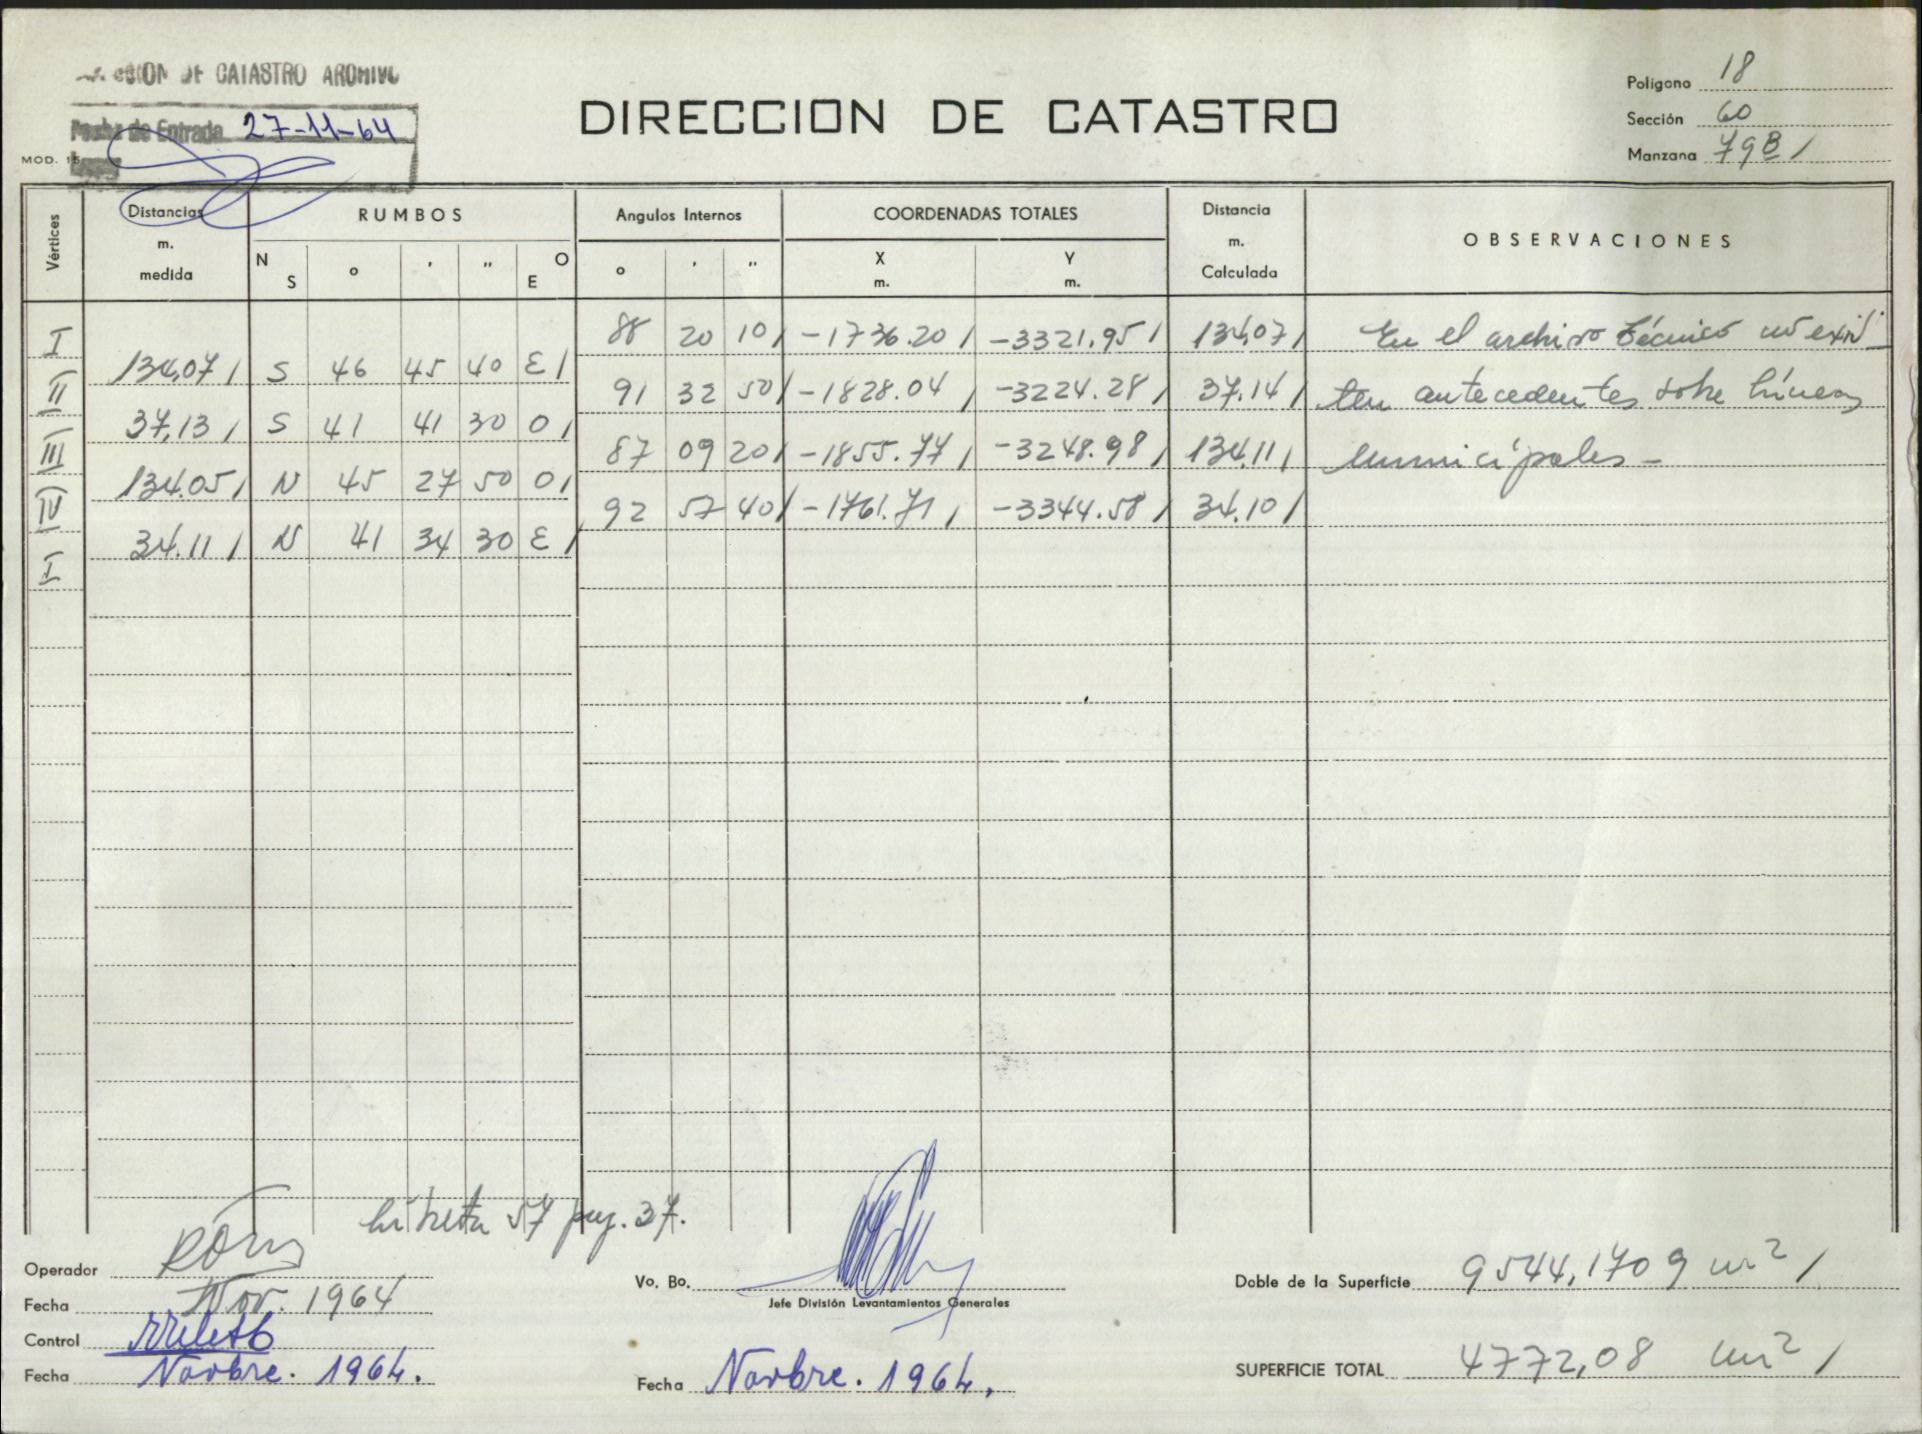 CCION DE CATASTRO ARCHIVO
Fecha de Entrada 27-11-64
MOD. 15
DIRECCION DE CATASTRO
Polígono 18
Sección 60
Manzana 79B /
Vértices
Distancias m. medida
RUMBOS
N S ° ' '' E O
Angulos Internos
° ' ''
COORDENADAS TOTALES
X m. Y m.
Distancia m. Calculada
OBSERVACIONES
I 88 20 10 / -1736.20 / -3321.95 / 134,07 / En el archivo técnico no exis-
134,07 / S 46 45 40 E /
II 91 32 50 / -1828.04 / -3224.28 / 37.14 / ten antecedentes sobre líneas
37,13 / S 41 41 30 O /
III 87 09 20 / -1855.77 / -3248.98 / 134,11 / municipales-
134.05 / N 45 27 50 O /
IV 92 57 40 / -1761.71 / -3344.58 / 34.10 /
34.11 / N 41 34 30 E /
I
libreta 57 pag. 37.
Operador
Fecha Nov. 1964
Control
Fecha Novbre. 1964.
Vo. Bo.
Jefe División Levantamientos Generales
Fecha Novbre. 1964.
Doble de la Superficie 9544,1709 m² /
SUPERFICIE TOTAL 4772,08 m² /